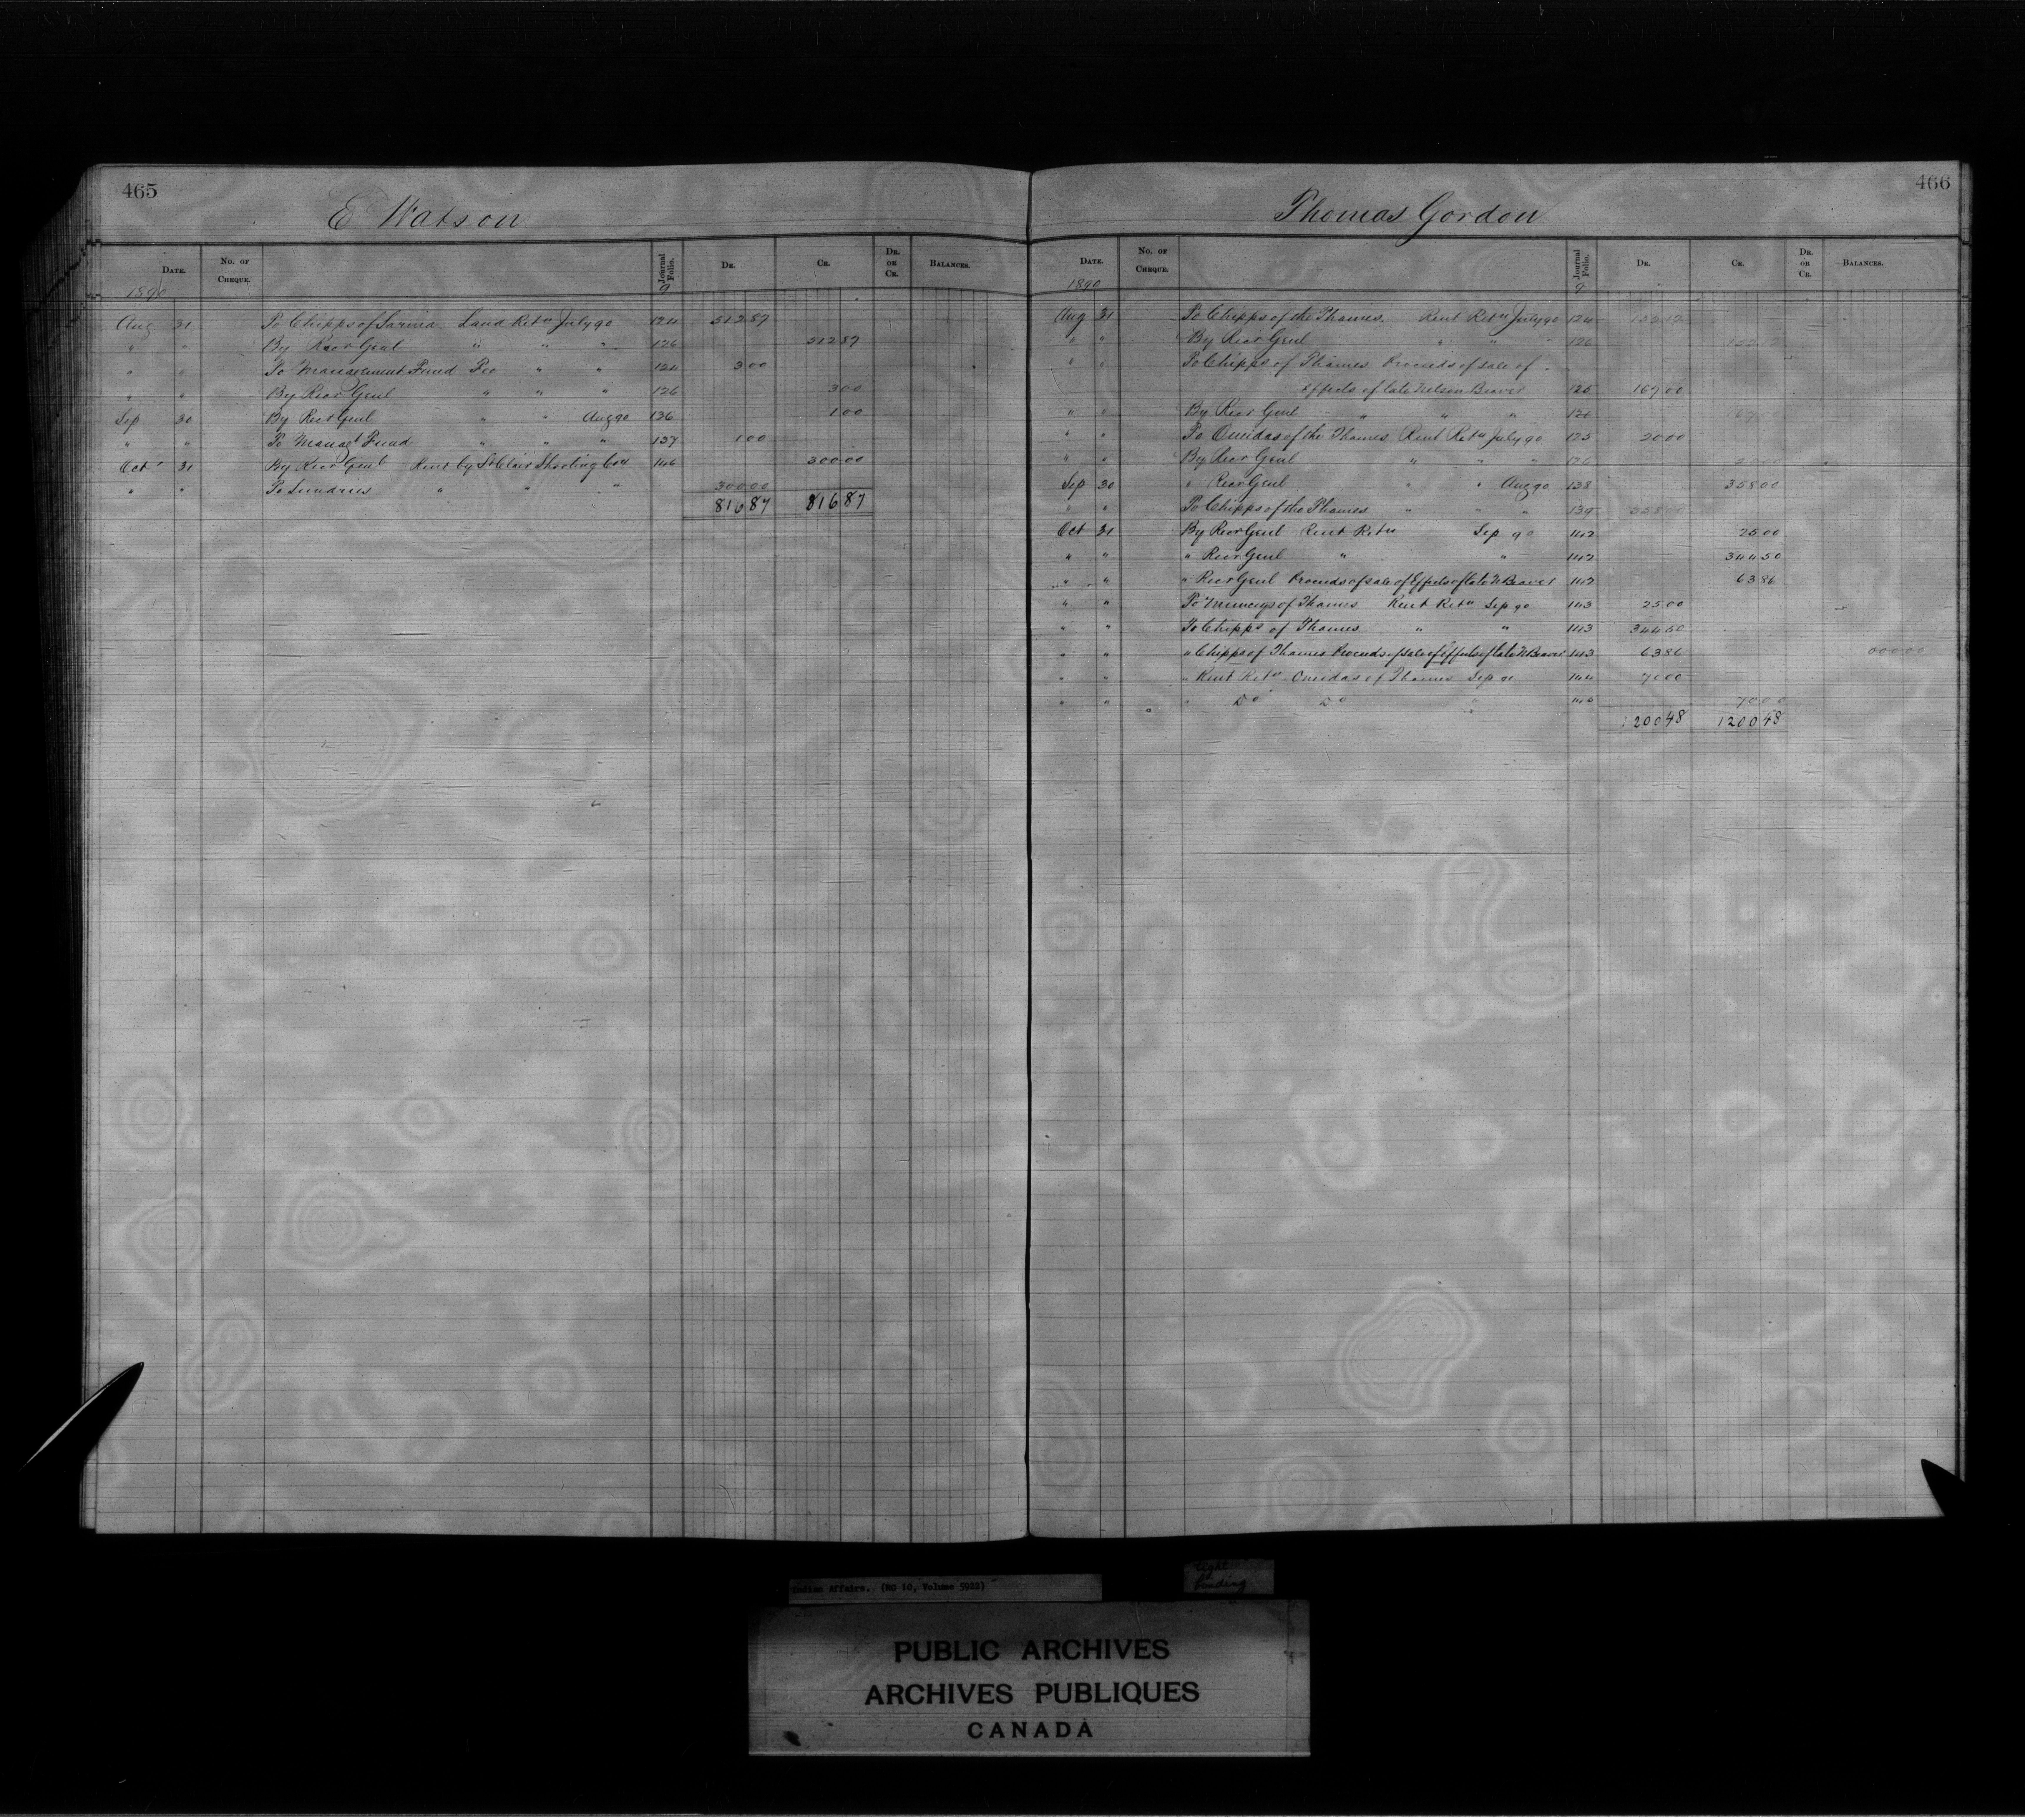 465
E Watson
Date. No. of Cheque. Journal Folio. Dr. Cr. Dr. or Cr. Balances.
1890 9
Aug 31 To Chipps of Sarnia Land Retn July 90 124 512 87
" " By Recr Genl " " " 126 512 87
" " To Management Fund Fee " " 124 3 00
" " By Recr Genl " " " 126 3 00
Sep 30 By Recr Genl " " Aug 90 136 1 00
" " To Managt Fund " " " 137 1 00
Oct 31 By Recr Genl Rent by St Clair Shooting Coy 146 300 00
" " To Sundries " " " 300 00
816 87 816 87
466
Thomas Gordon
Date. No. of Cheque. Journal Folio. Dr. Cr. Dr. or Cr. Balances.
1890 9
Aug 31 To Chipps of the Thames. Rent Retn July 90 124
" " By Recr Genl " " " 126
" " To Chipps of Thames Proceeds of sale of
Effects of late Nelson Beaver 125 167 00
" " By Recr Genl " " " 126
" " To Oneidas of the Thames Rent Retn July 90 125 20 00
" " By Recr Genl " " " 126 20 00
Sep 30 " Recr Genl " " Aug 90 138 358 00
" " To Chipps of the Thames " " " 139 358 00
Oct 31 By Recr Genl Rent Retn Sep 90 142 25 00
" " " Recr Genl " " 142 344 50
" " " Recr Genl Proceeds of sale of Effects of late N Beaver 142 63 86
" " To Munceys of Thames Rent Retn Sep 90 143 25 00
" " To Chipps of Thames " " 143 344 50
" " " Chipps of Thames Proceeds of sale of Effects of late N Beaver 143 63 86
" " " Rent Retn Oneidas of Thames Sep 90 144 70 00
" " " Do Do " 145 70 00
1200 48 1200 48
Indian Affairs. (RG 10, Volume 5922)
tight binding
PUBLIC ARCHIVES
ARCHIVES PUBLIQUES
CANADA